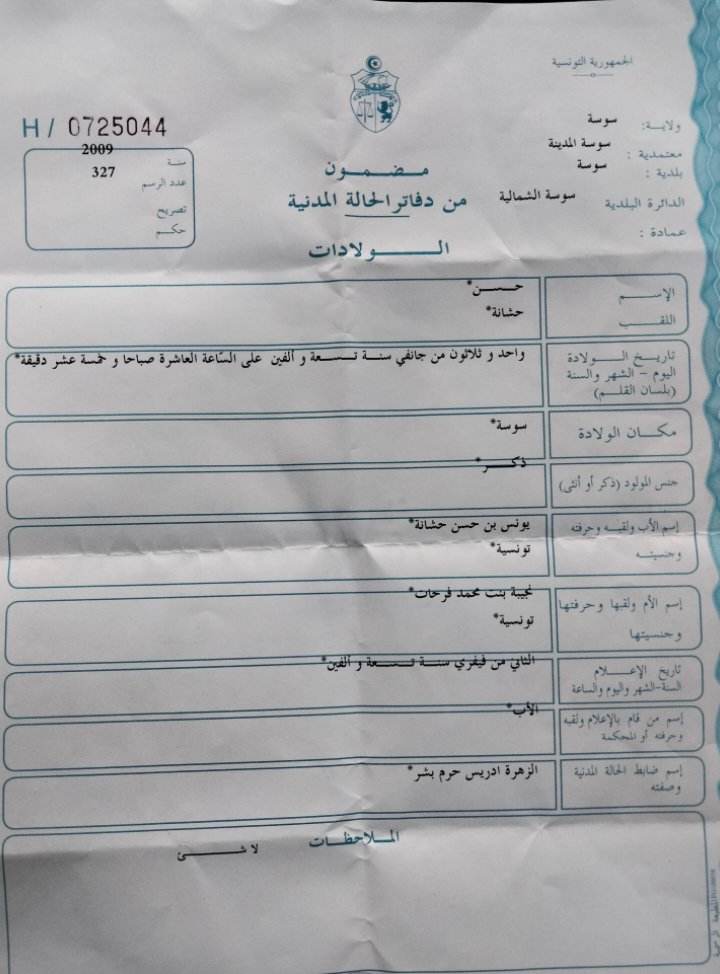 الجمهورية التونسية
ولاية: سوسة
معتمدية : سوسة المدينة
بلدية : سوسة
الدائرة البلدية سوسة الشمالية
عمادة :
H / 0725044
سنة 2009
عدد الرسم 327
تصريح
حكم
مضمون
من دفاتر الحالة المدنية
الولادات
الإسم حسن*
اللقب حشانة*
تاريخ الولادة
اليوم - الشهر والسنة
(بلسان القلم)
واحد و ثلاثون من جانفي سنة تسعة و ألفين على السّاعة العاشرة صباحا و خمسة عشر دقيقة*
مكان الولادة سوسة*
جنس المولود (ذكر أو أنثى) ذكر*
إسم الأب ولقبه وحرفته يونس بن حسن حشانة*
وجنسيته تونسية*
إسم الأم ولقبها وحرفتها نجيبة بنت محمد فرحات*
وجنسيتها تونسية*
تاريخ الإعلام الثاني من فيفري سنة تسعة و ألفين*
السنة-الشهر واليوم والساعة
إسم من قام بالإعلام ولقبه الأب*
وحرفته أو المحكمة
إسم ضابط الحالة المدنية الزهرة ادريس حرم بشر*
وصفته
الملاحظات
لا شئ